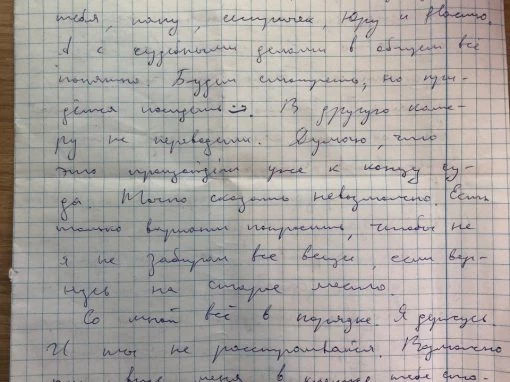 тебя, папу, сестричек, Юру и Настю.
А с судебными делами в общем всё
понятно. Будем смотреть, но при-
дётся посидеть :). В другую каме-
ру не перевели. Думаю, что
это произойдёт уже к концу су-
да. Точно сказать невозможно. Есть
только вариант попросить, чтобы не
я не забирал все вещи, если вер-
нусь на старое место.
Со мной всё в порядке. Я держусь.
И ты не расстраивайся. Возможно
меня в тебе